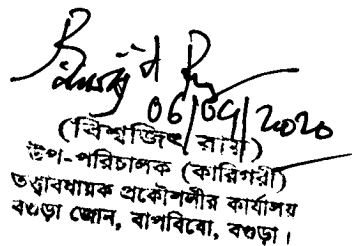 Biswajit Roy
06/09/2020
(বিশ্বজিৎ রায়)
উপ-পরিচালক (কারিগরী)
তত্ত্বাবধায়ক প্রকৌশলীর কার্যালয়
বগুড়া জোন, বাপবিবো, বগুড়া।